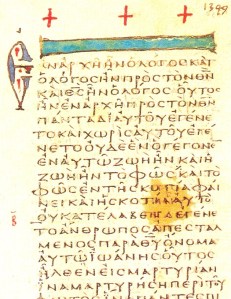 1349
ЄΝΑΡΧΗΗΝΟΛΟΓΟСΚΑΙ
ΟΛΟΓΟСΗΝΠΡΟСΤΟΝΘΝ
ΚΑΙΘСΗΝΟΛΟΓΟСΟΥΤΟС
ΗΝЄΝΑΡΧΗΠΡΟСΤΟΝΘΝ
ΠΑΝΤΑΔΙΑΥΤΟΥЄΓЄΝЄ
ΤΟΚΑΙΧΩΡΙСΑΥΤΟΥЄΓЄ
ΝЄΤΟΟΥΔЄЄΝΟΓЄΓΟΝЄΝ
ЄΝΑΥΤΩΖΩΗΗΝΚΑΙΗ
ΖΩΗΗΝΤΟΦΩСΚΑΙΤΟ
ΦΩСЄΝΤΗСΚΟΤΙΑΦΑΙ
ΝЄΙΚΑΙΗСΚΟΤΙΑΑΥΤΟ
ΟΥΚΑΤЄΛΑΒЄΝЄΓЄΝЄ
ΤΟΑΝΘΡΩΠΟСΑΠЄСΤΑΛ
ΜЄΝΟСΠΑΡΑΘΥΟΝΟΜΑ
ΑΥΤΩΙΩΑΝΗСΟΥΤΟС
ΗΛΘЄΝЄΙСΜΑΡΤΥΡΙΑΝ
ΙΝΑΜΑΡΤΥΡΗСΗΠЄΡΙΤΟΥ